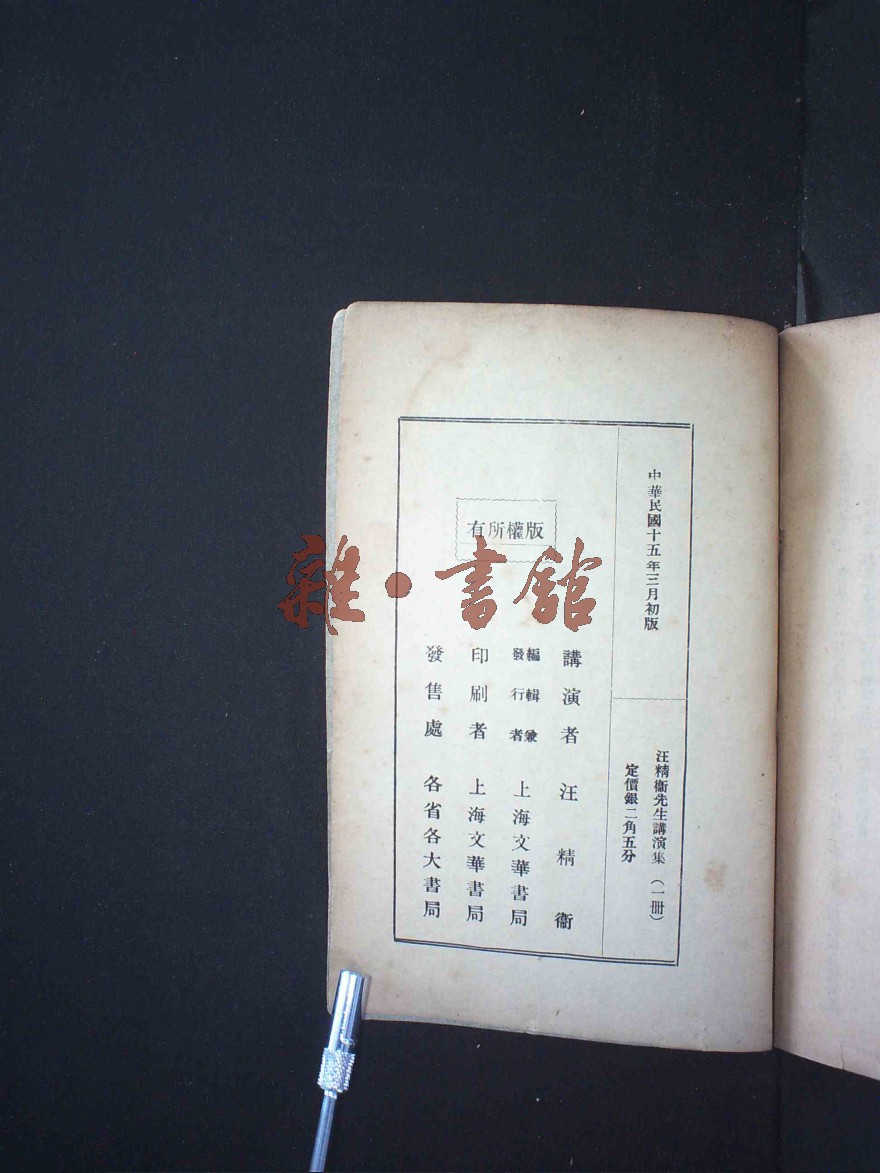 中華民國十五年三月初版
汪精衞先生講演集（一冊）
定價銀二角五分
版權所有
講演者 汪精衞
編輯兼發行者 上海文華書局
印刷者 上海文華書局
發售處 各省各大書局
雜·書館